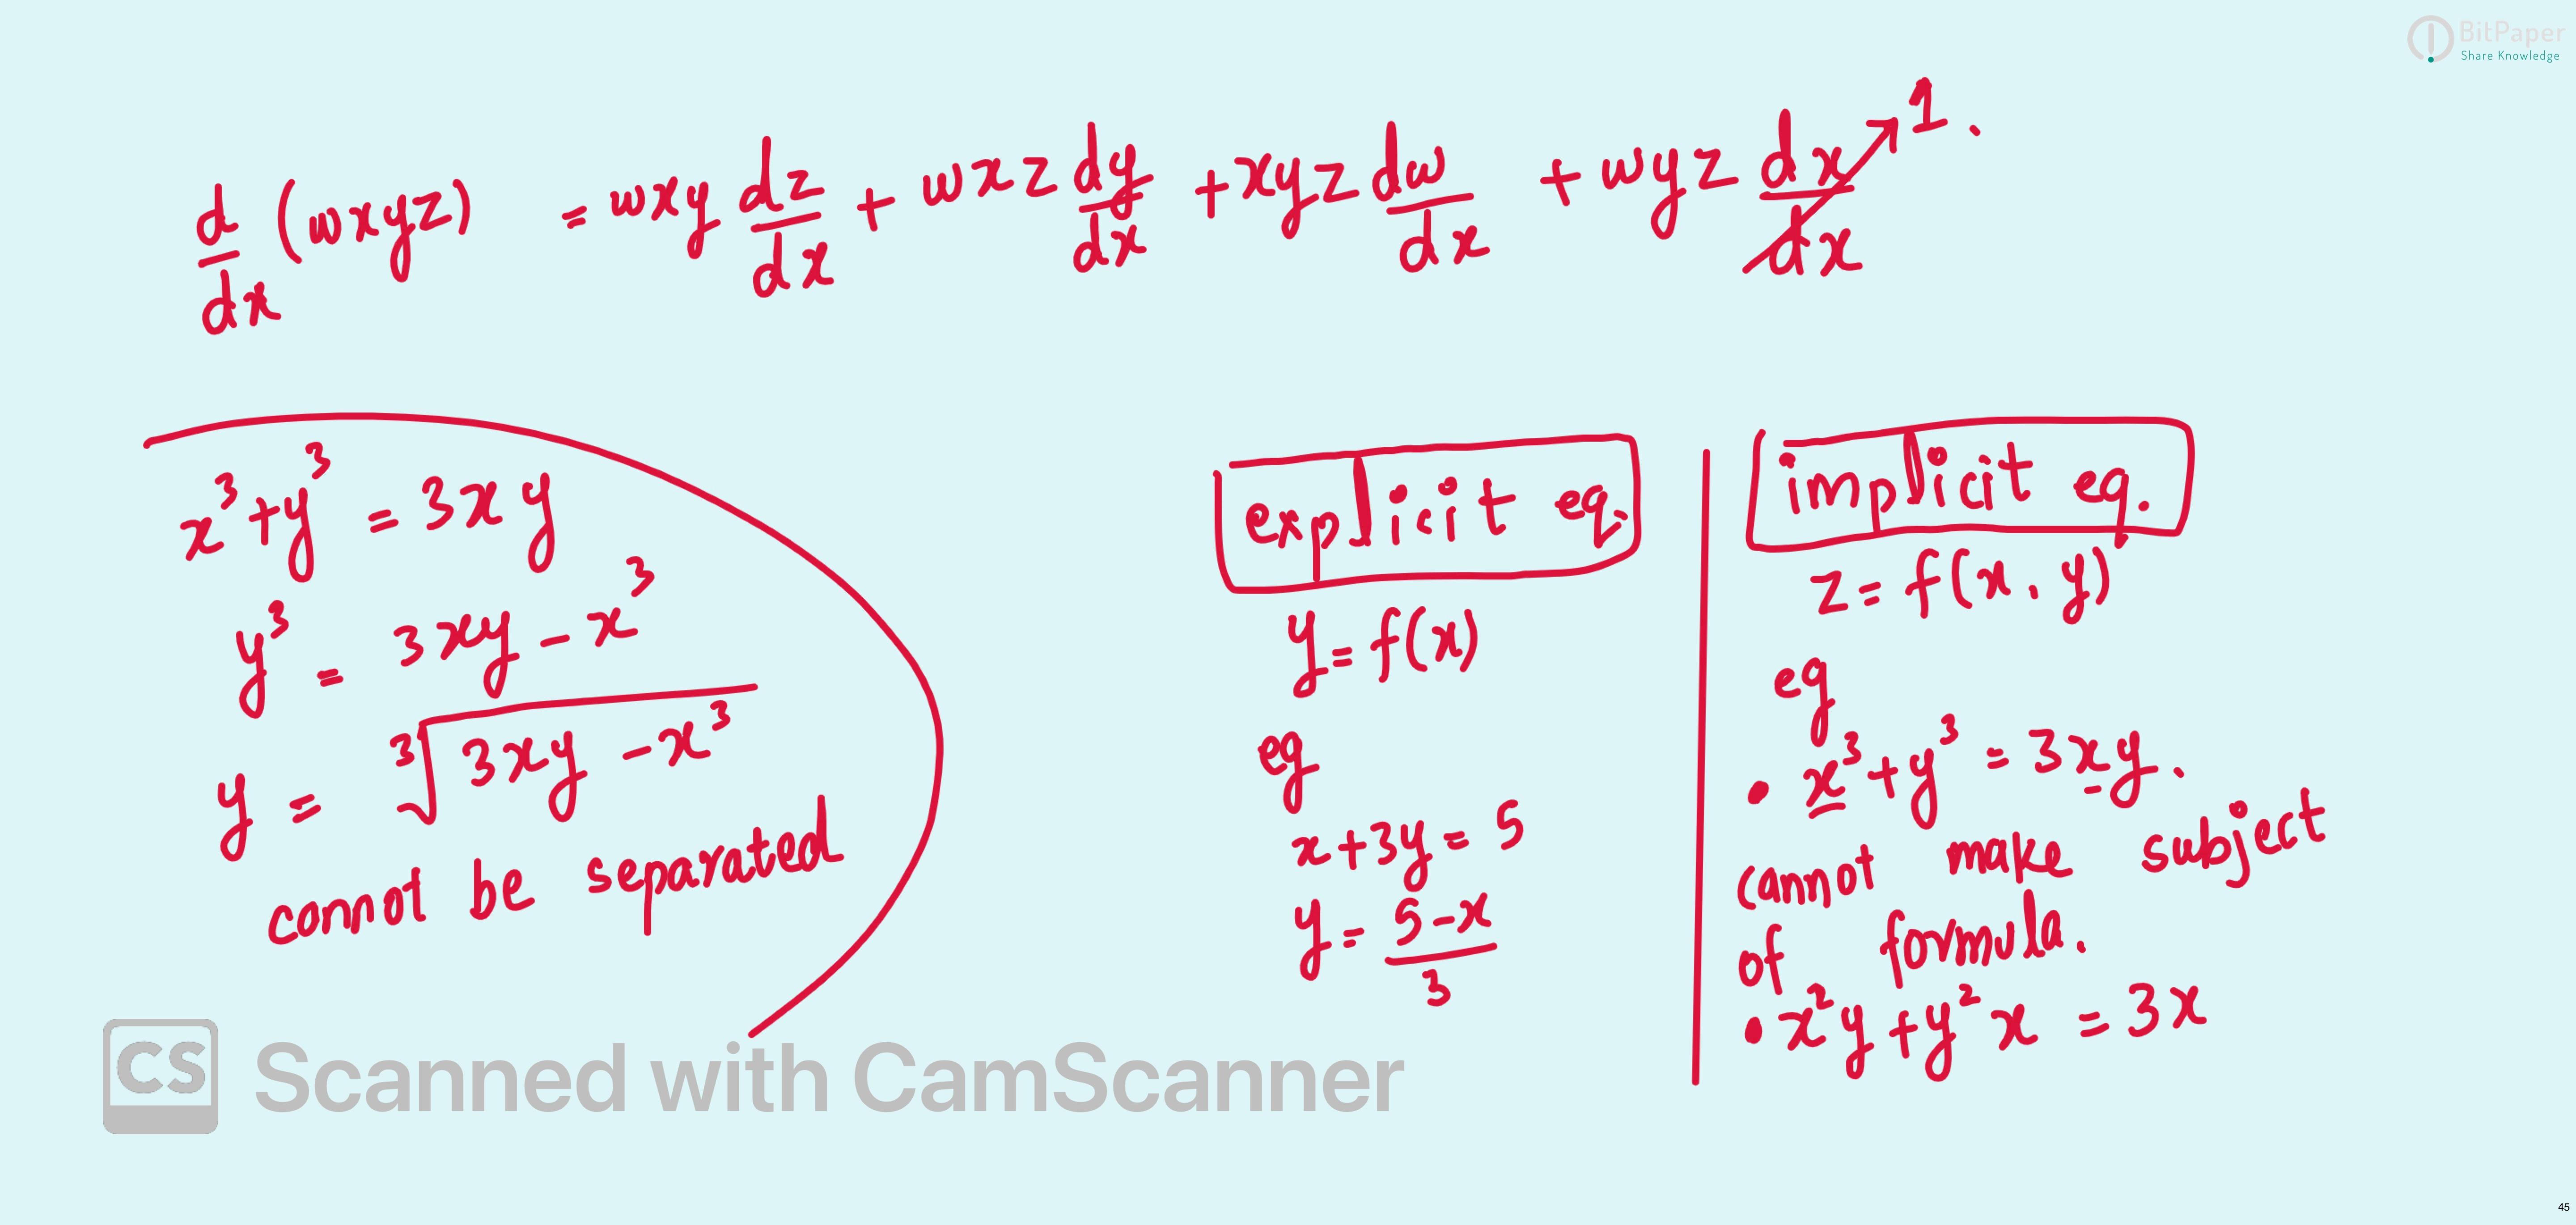 BitPaper
Share Knowledge
d/dx (wxyz) = wxy dz/dx + wxz dy/dx + xyz dw/dx + wyz dx/dx → 1.
x³+y³ = 3xy
y³ = 3xy - x³
y = ∛(3xy - x³)
cannot be separated
explicit eq.
y = f(x)
eg
x+3y = 5
y = (5-x)/3
implicit eq.
z = f(x, y)
eg
• x³+y³ = 3xy.
cannot make subject
of formula.
• x²y + y²x = 3x
CS Scanned with CamScanner
45